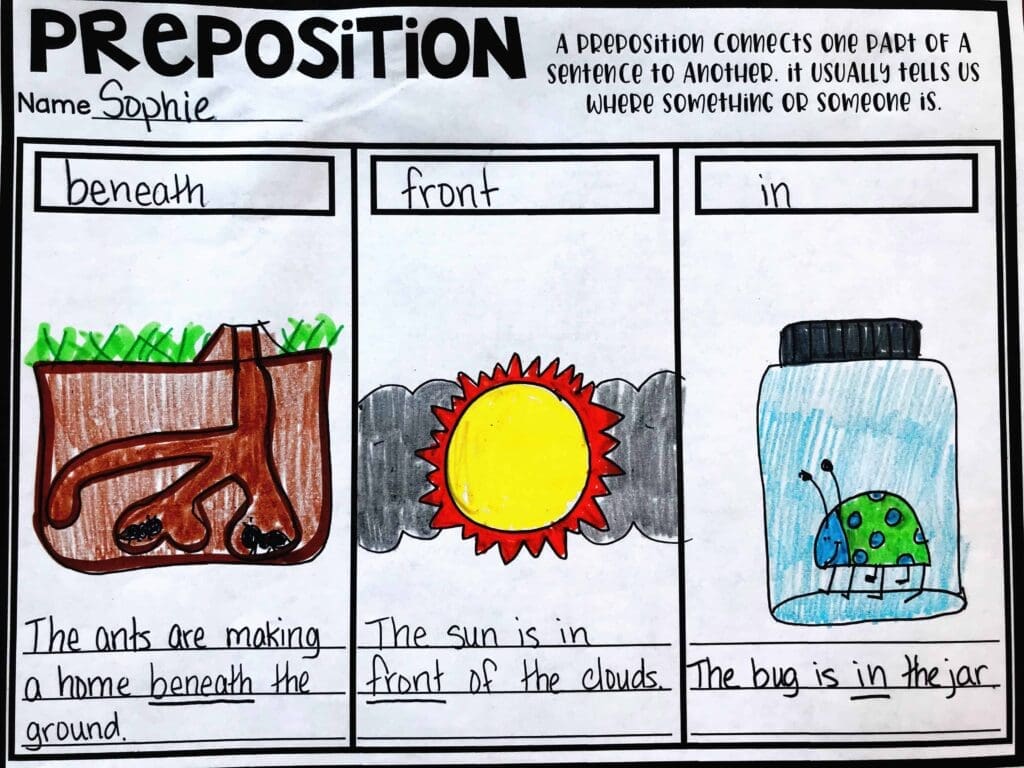 PREPOSITION
A PREPOSITION CONNECTS ONE PART OF A
SENTENCE TO ANOTHER. IT USUALLY TELLS US
WHERE SOMETHING OR SOMEONE IS.
Name Sophie
beneath
The ants are making
a home beneath the
ground.
front
The sun is in
front of the clouds.
in
The bug is in the jar.